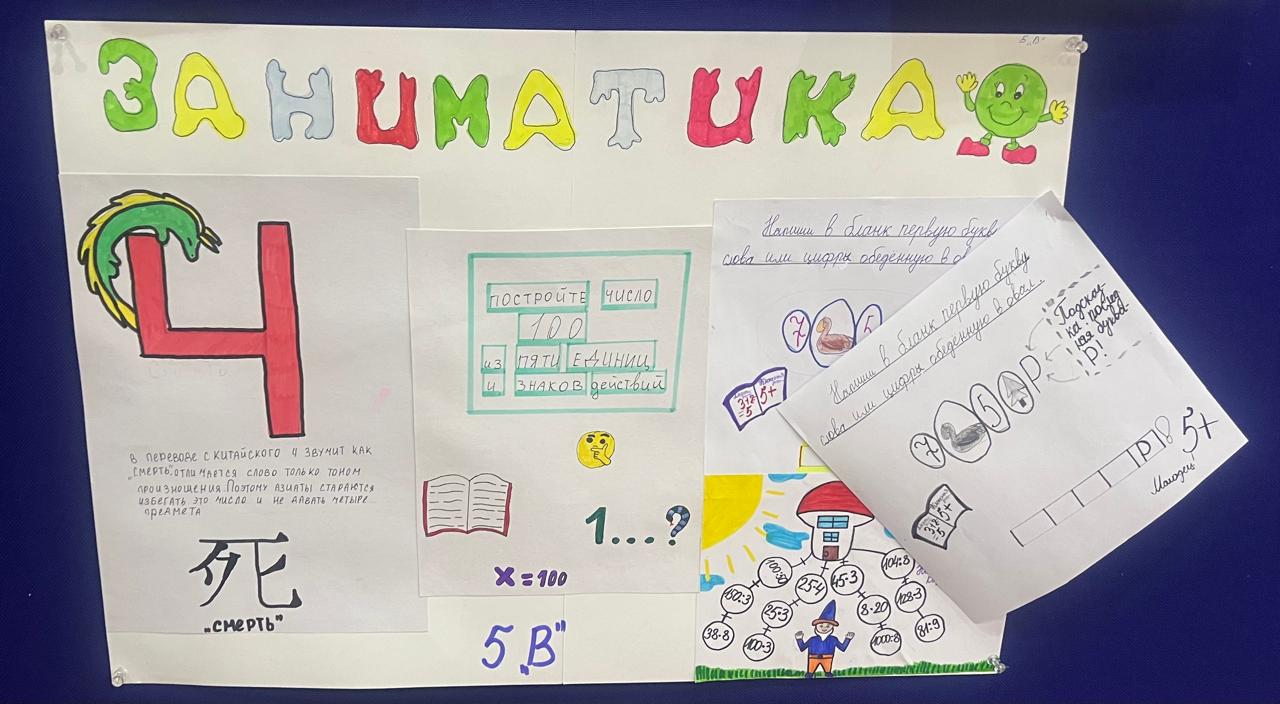 5 „В"
ЗАНИМАТИКА
4
В ПЕРЕВОДЕ С КИТАЙСКОГО 4 ЗВУЧИТ КАК
„СМЕРТЬ", ОТЛИЧАЕТСЯ СЛОВО ТОЛЬКО ТОНОМ
ПРОИЗНОШЕНИЯ. ПОЭТОМУ АЗИАТЫ СТАРАЮТСЯ
ИЗБЕГАТЬ ЭТО ЧИСЛО И НЕ ДАВАТЬ ЧЕТЫРЕ
ПРЕДМЕТА
死
„СМЕРТЬ"
ПОСТРОЙТЕ ЧИСЛО
100
ИЗ ПЯТИ ЕДИНИЦ
И ЗНАКОВ ДЕЙСТВИЙ
1...?
X = 100
5 „В"
Напиши в бланк первую букв
слова или цифры обеденную в о
7 5
3+2
=5
5+
Напиши в бланк первую букву
слова или цифры обеденную в овал.
Подсказ-
ка: послед
няя буквы
Р!
7 5 Р
3+2
=5
5+
Р
5+
Молодец!
25·4
45·3
104:8
150:3
25·3
8·20
128·3
38·8
100·3
1000:8
81:9